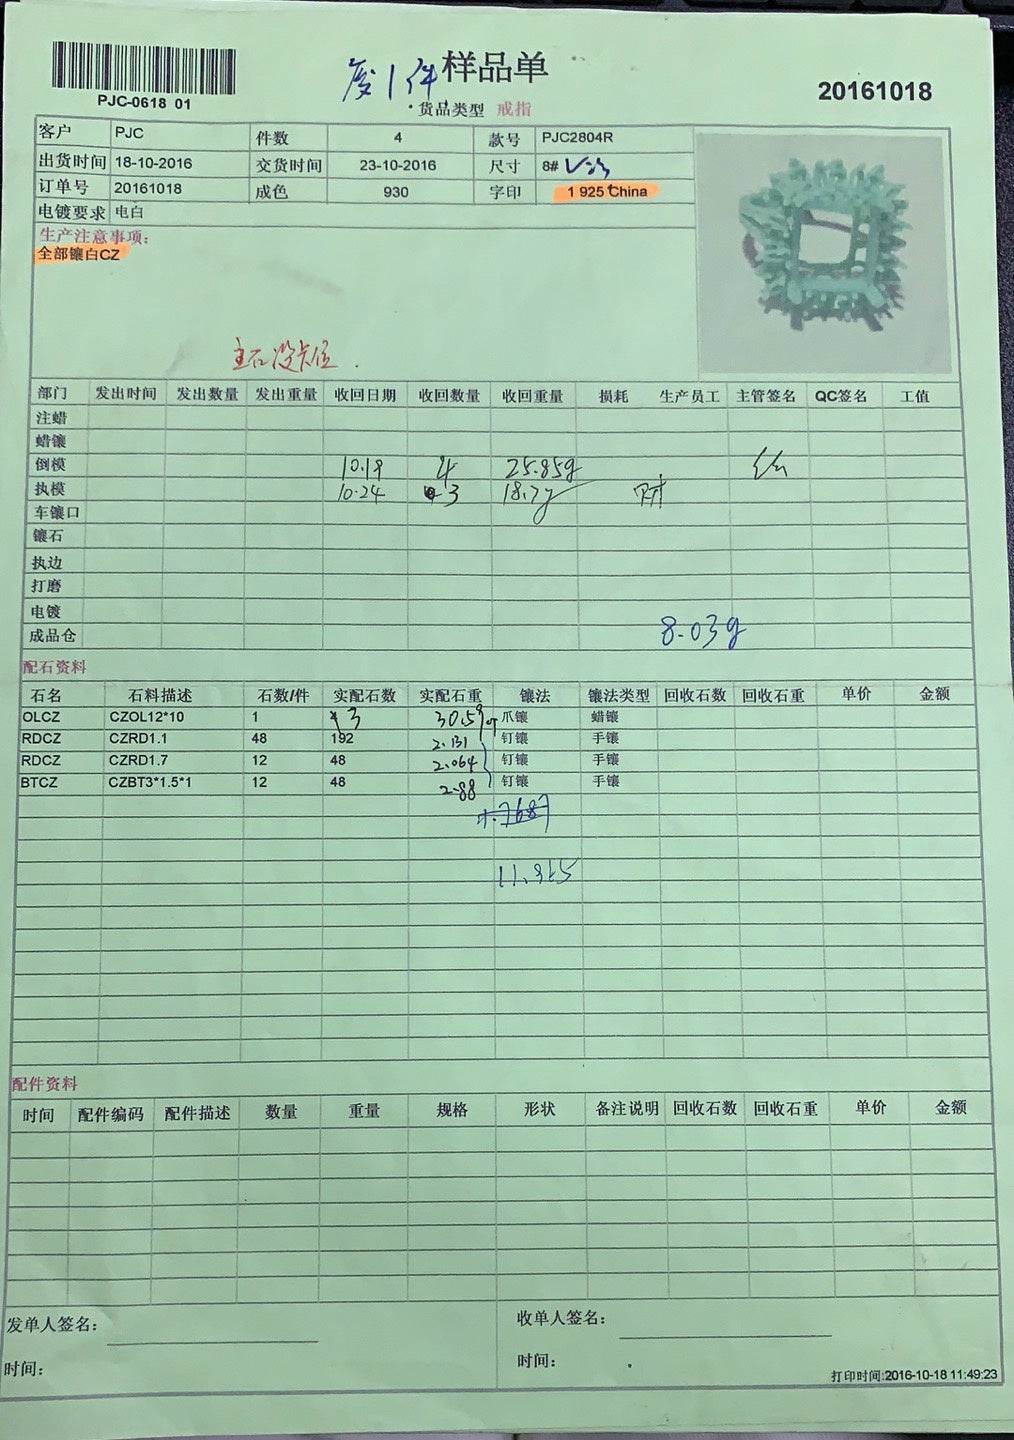 PJC-0618 01
废1件 样品单
货品类型 戒指
20161018
客户 PJC 件数 4 款号 PJC2804R
出货时间 18-10-2016 交货时间 23-10-2016 尺寸 8#
订单号 20161018 成色 930 字印 1 925 China
电镀要求 电白
生产注意事项:
全部镶白CZ
主石没卡位.
部门 发出时间 发出数量 发出重量 收回日期 收回数量 收回重量 损耗 生产员工 主管签名 QC签名 工值
注蜡
蜡镶
倒模 10.19 4 25.85g
执模 10.24 3 18.7g
车镶口
镶石
执边
打磨
电镀
成品仓 8.03g
配石资料
石名 石料描述 石数/件 实配石数 实配石重 镶法 镶法类型 回收石数 回收石重 单价 金额
OLCZ CZOL12*10 1 3 30.59 爪镶 蜡镶
RDCZ CZRD1.1 48 192 2.131 钉镶 手镶
RDCZ CZRD1.7 12 48 2.064 钉镶 手镶
BTCZ CZBT3*1.5*1 12 48 2.88 钉镶 手镶
配件资料
时间 配件编码 配件描述 数量 重量 规格 形状 备注说明 回收石数 回收石重 单价 金额
发单人签名: 收单人签名:
时间: 时间:
打印时间:2016-10-18 11:49:23